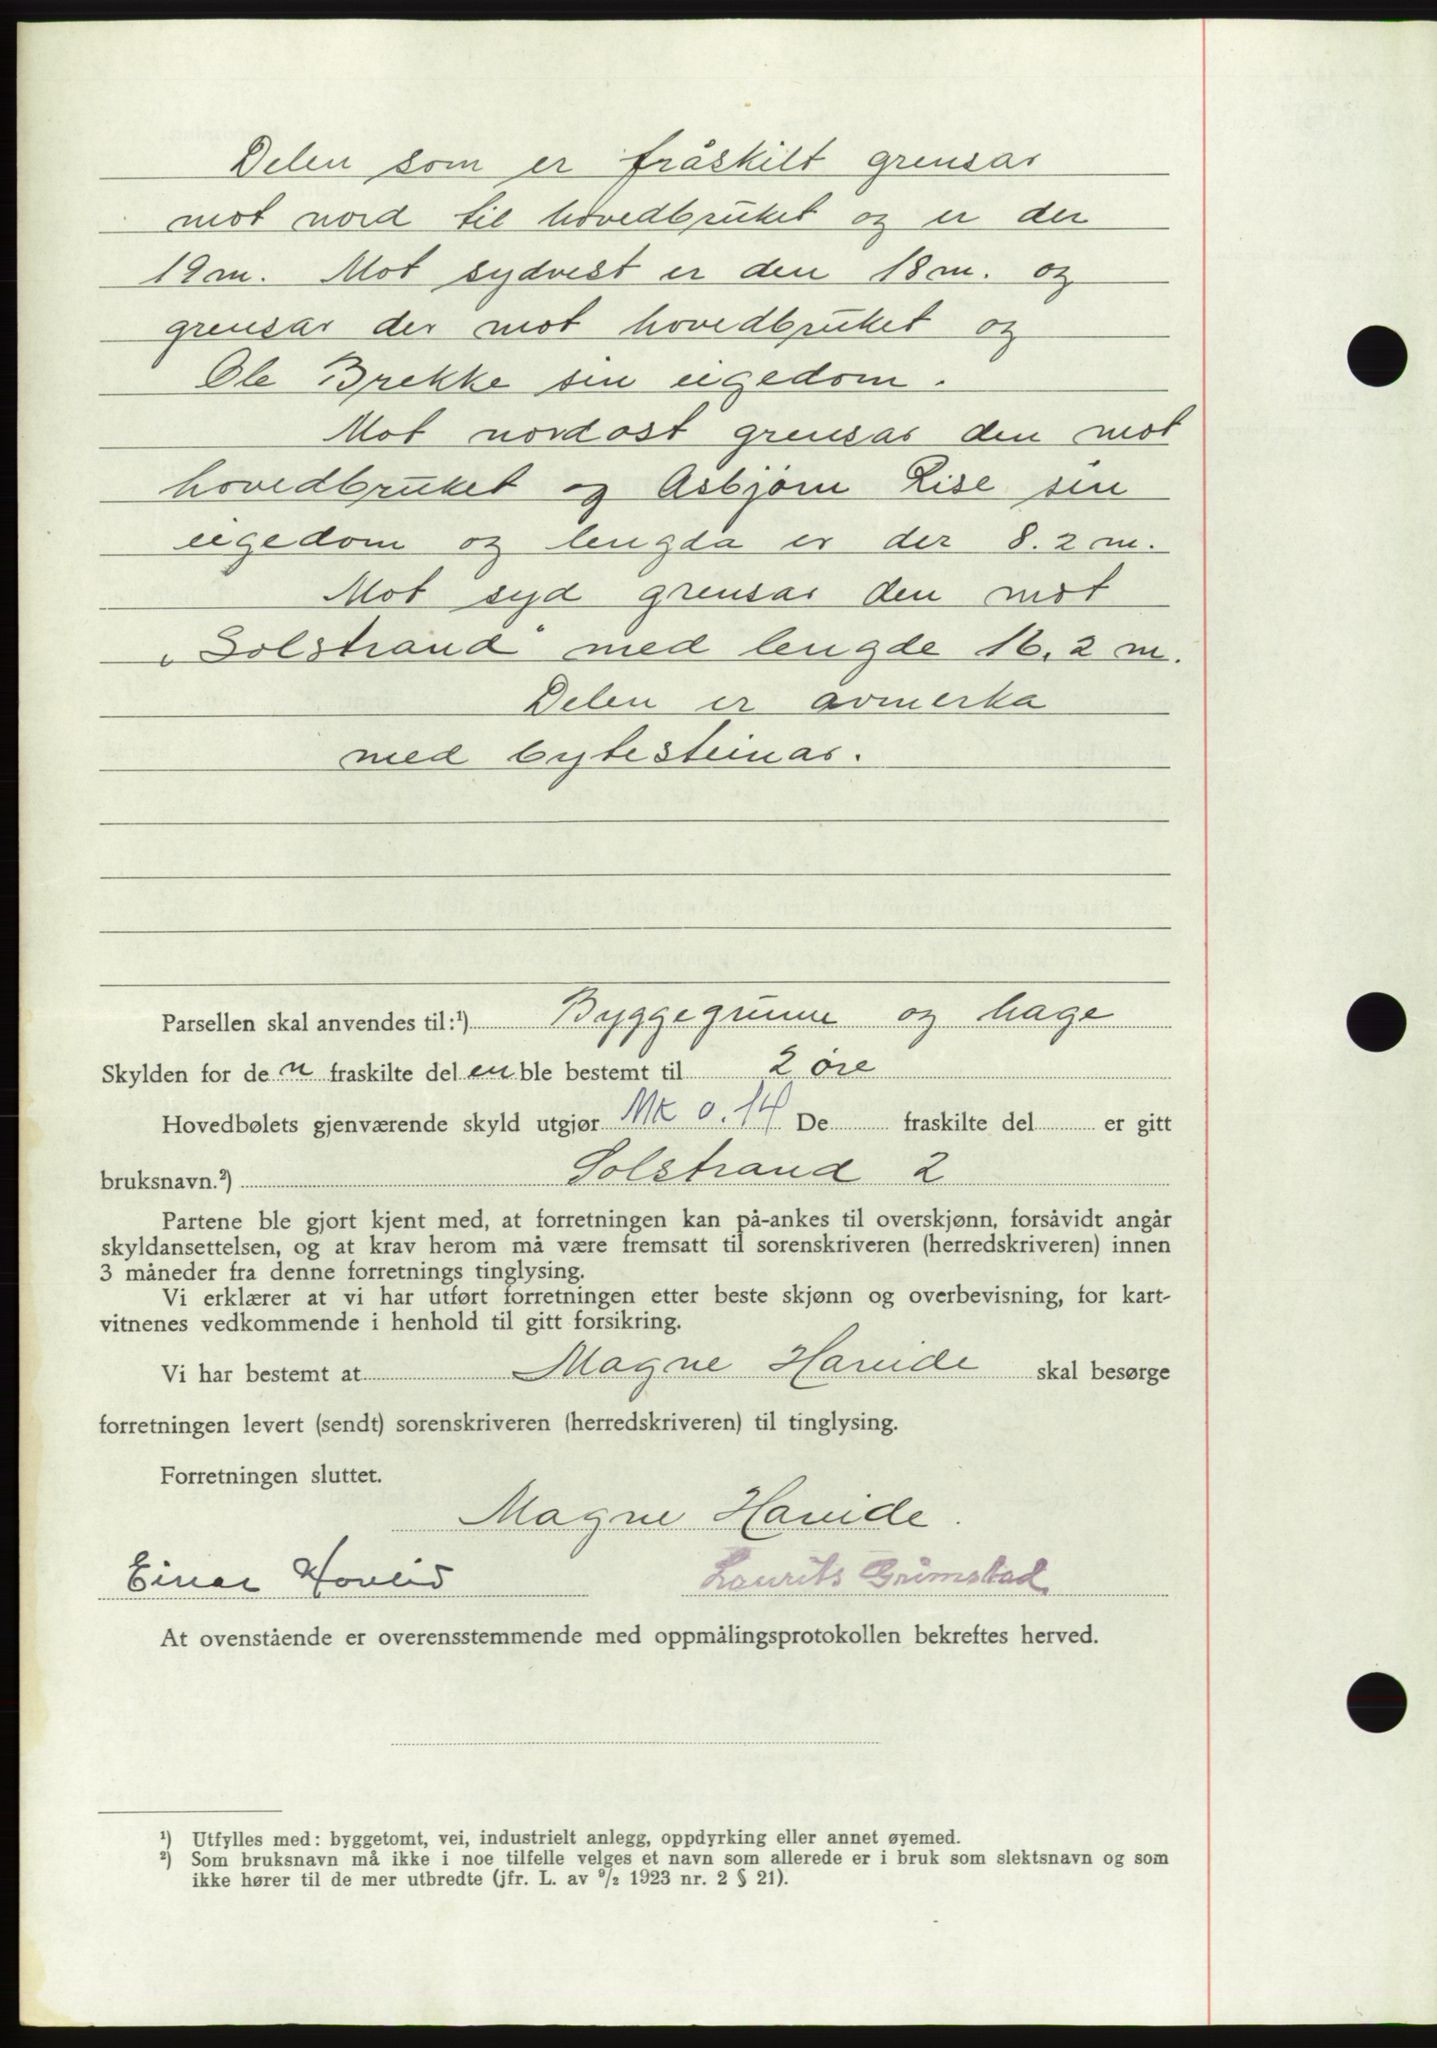 Delen som er fråskilt grensar
mot nord til hovedbruket og er der
19 m. Mot sydvest er den 18 m. og
grensar der mot hovedbruket og
Ole Brekke sin eigedom.
Mot nordost grensar den mot
hovedbruket og Asbjørn Rise sin
eigedom og lengda er der 8.2 m.
Mot syd grensar den mot
„Solstrand" med lengde 16,2 m.
Delen er avmerka
med bytesteinar.
Parsellen skal anvendes til:¹) Byggegrunn og hage
Skylden for de n fraskilte del en ble bestemt til 2 øre
Hovedbølets gjenværende skyld utgjør Mk 0.14 De fraskilte del er gitt
bruksnavn.²) Solstrand 2
Partene ble gjort kjent med, at forretningen kan på-ankes til overskjønn, forsåvidt angår
skyldansettelsen, og at krav herom må være fremsatt til sorenskriveren (herredskriveren) innen
3 måneder fra denne forretnings tinglysing.
Vi erklærer at vi har utført forretningen etter beste skjønn og overbevisning, for kart-
vitnenes vedkommende i henhold til gitt forsikring.
Vi har bestemt at Magne Hareide skal besørge
forretningen levert (sendt) sorenskriveren (herredskriveren) til tinglysing.
Forretningen sluttet.
Magne Hareide.
Einar Hovlid Laurits Grimstad
At ovenstående er overensstemmende med oppmålingsprotokollen bekreftes herved.
¹) Utfylles med: byggetomt, vei, industrielt anlegg, oppdyrking eller annet øyemed.
²) Som bruksnavn må ikke i noe tilfelle velges et navn som allerede er i bruk som slektsnavn og som
ikke hører til de mer utbredte (jfr. L. av ⁹/₂ 1923 nr. 2 § 21).